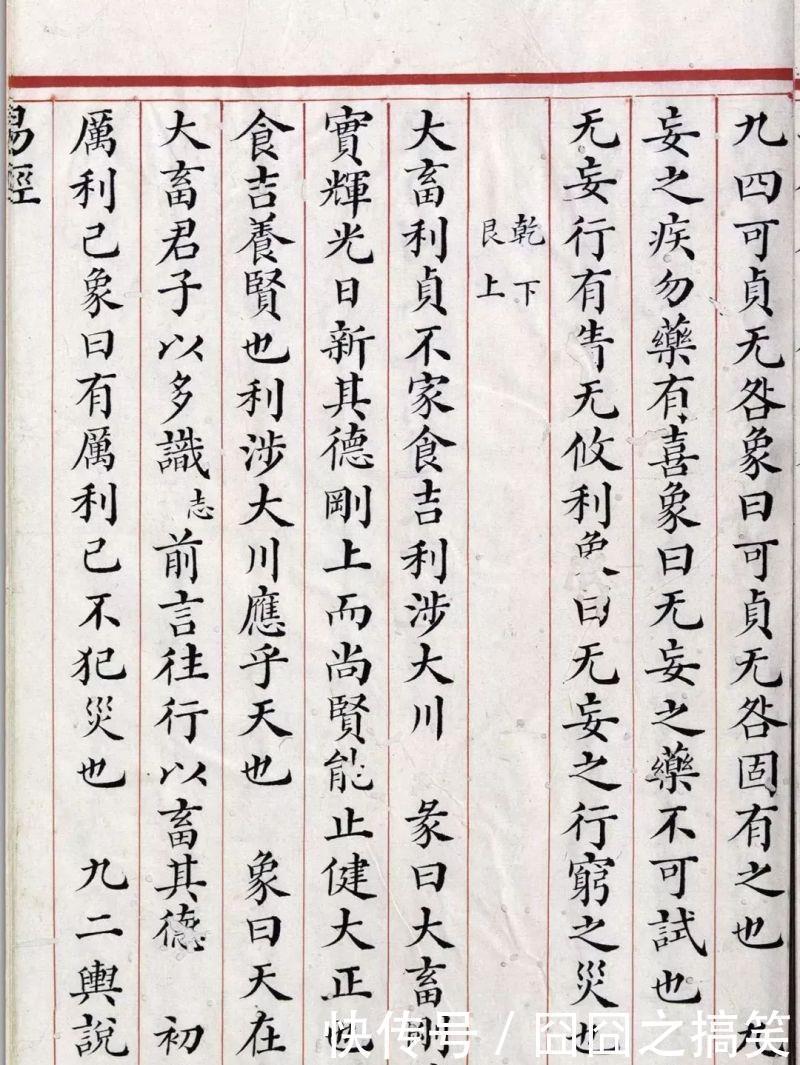 九四可貞无咎象曰可貞无咎固有之也 九
妄之疾勿藥有喜象曰无妄之藥不可試也
无妄行有眚无攸利象曰无妄之行窮之災也
乾下
艮上
大畜利貞不家食吉利涉大川 彖曰大畜剛
實輝光日新其德剛上而尚賢能止健大正也
食吉養賢也利涉大川應乎天也 象曰天在
大畜君子以多識志前言往行以畜其德 初
厲利己象曰有厲利己不犯災也 九二輿說
易經
快传号 / 囧囧之搞笑